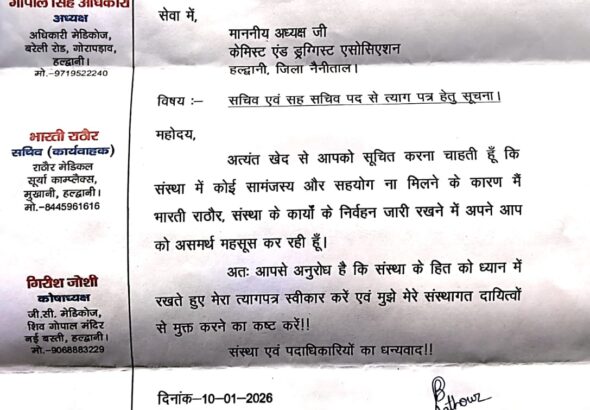 गोपाल सिंह अधिकारी
अध्यक्ष
अधिकारी मेडिकोज,
बरेली रोड, गोरापड़ाव,
हल्द्वानी।
मो.-9719522240
भारती राठौर
सचिव (कार्यवाहक)
राठौर मेडिकल
सूर्या काम्प्लैक्स,
मुखानी, हल्द्वानी।
मो.-8445961616
गिरीश जोशी
कोषाध्यक्ष
जी.सी. मेडिकोज,
शिव गोपाल मंदिर
नई बस्ती, हल्द्वानी।
मो.-9068883229
सेवा में,
माननीय अध्यक्ष जी
केमिस्ट एंड ड्रग्गिस्ट एसोसिएशन
हल्द्वानी, जिला नैनीताल।
विषय :– सचिव एवं सह सचिव पद से त्याग पत्र हेतु सूचना।
महोदय,
अत्यंत खेद से आपको सूचित करना चाहती हूँ कि
संस्था में कोई सामंजस्य और सहयोग ना मिलने के कारण मैं
भारती राठौर, संस्था के कार्यों के निर्वहन जारी रखने में अपने आप
को असमर्थ महसूस कर रही हूँ।
अतः आपसे अनुरोध है कि संस्था के हित को ध्यान में
रखते हुए मेरा त्यागपत्र स्वीकार करें एवं मुझे मेरे संस्थागत दायित्वों
से मुक्त करने का कष्ट करें!!
संस्था एवं पदाधिकारियों का धन्यवाद!!
दिनांक–10-01-2026